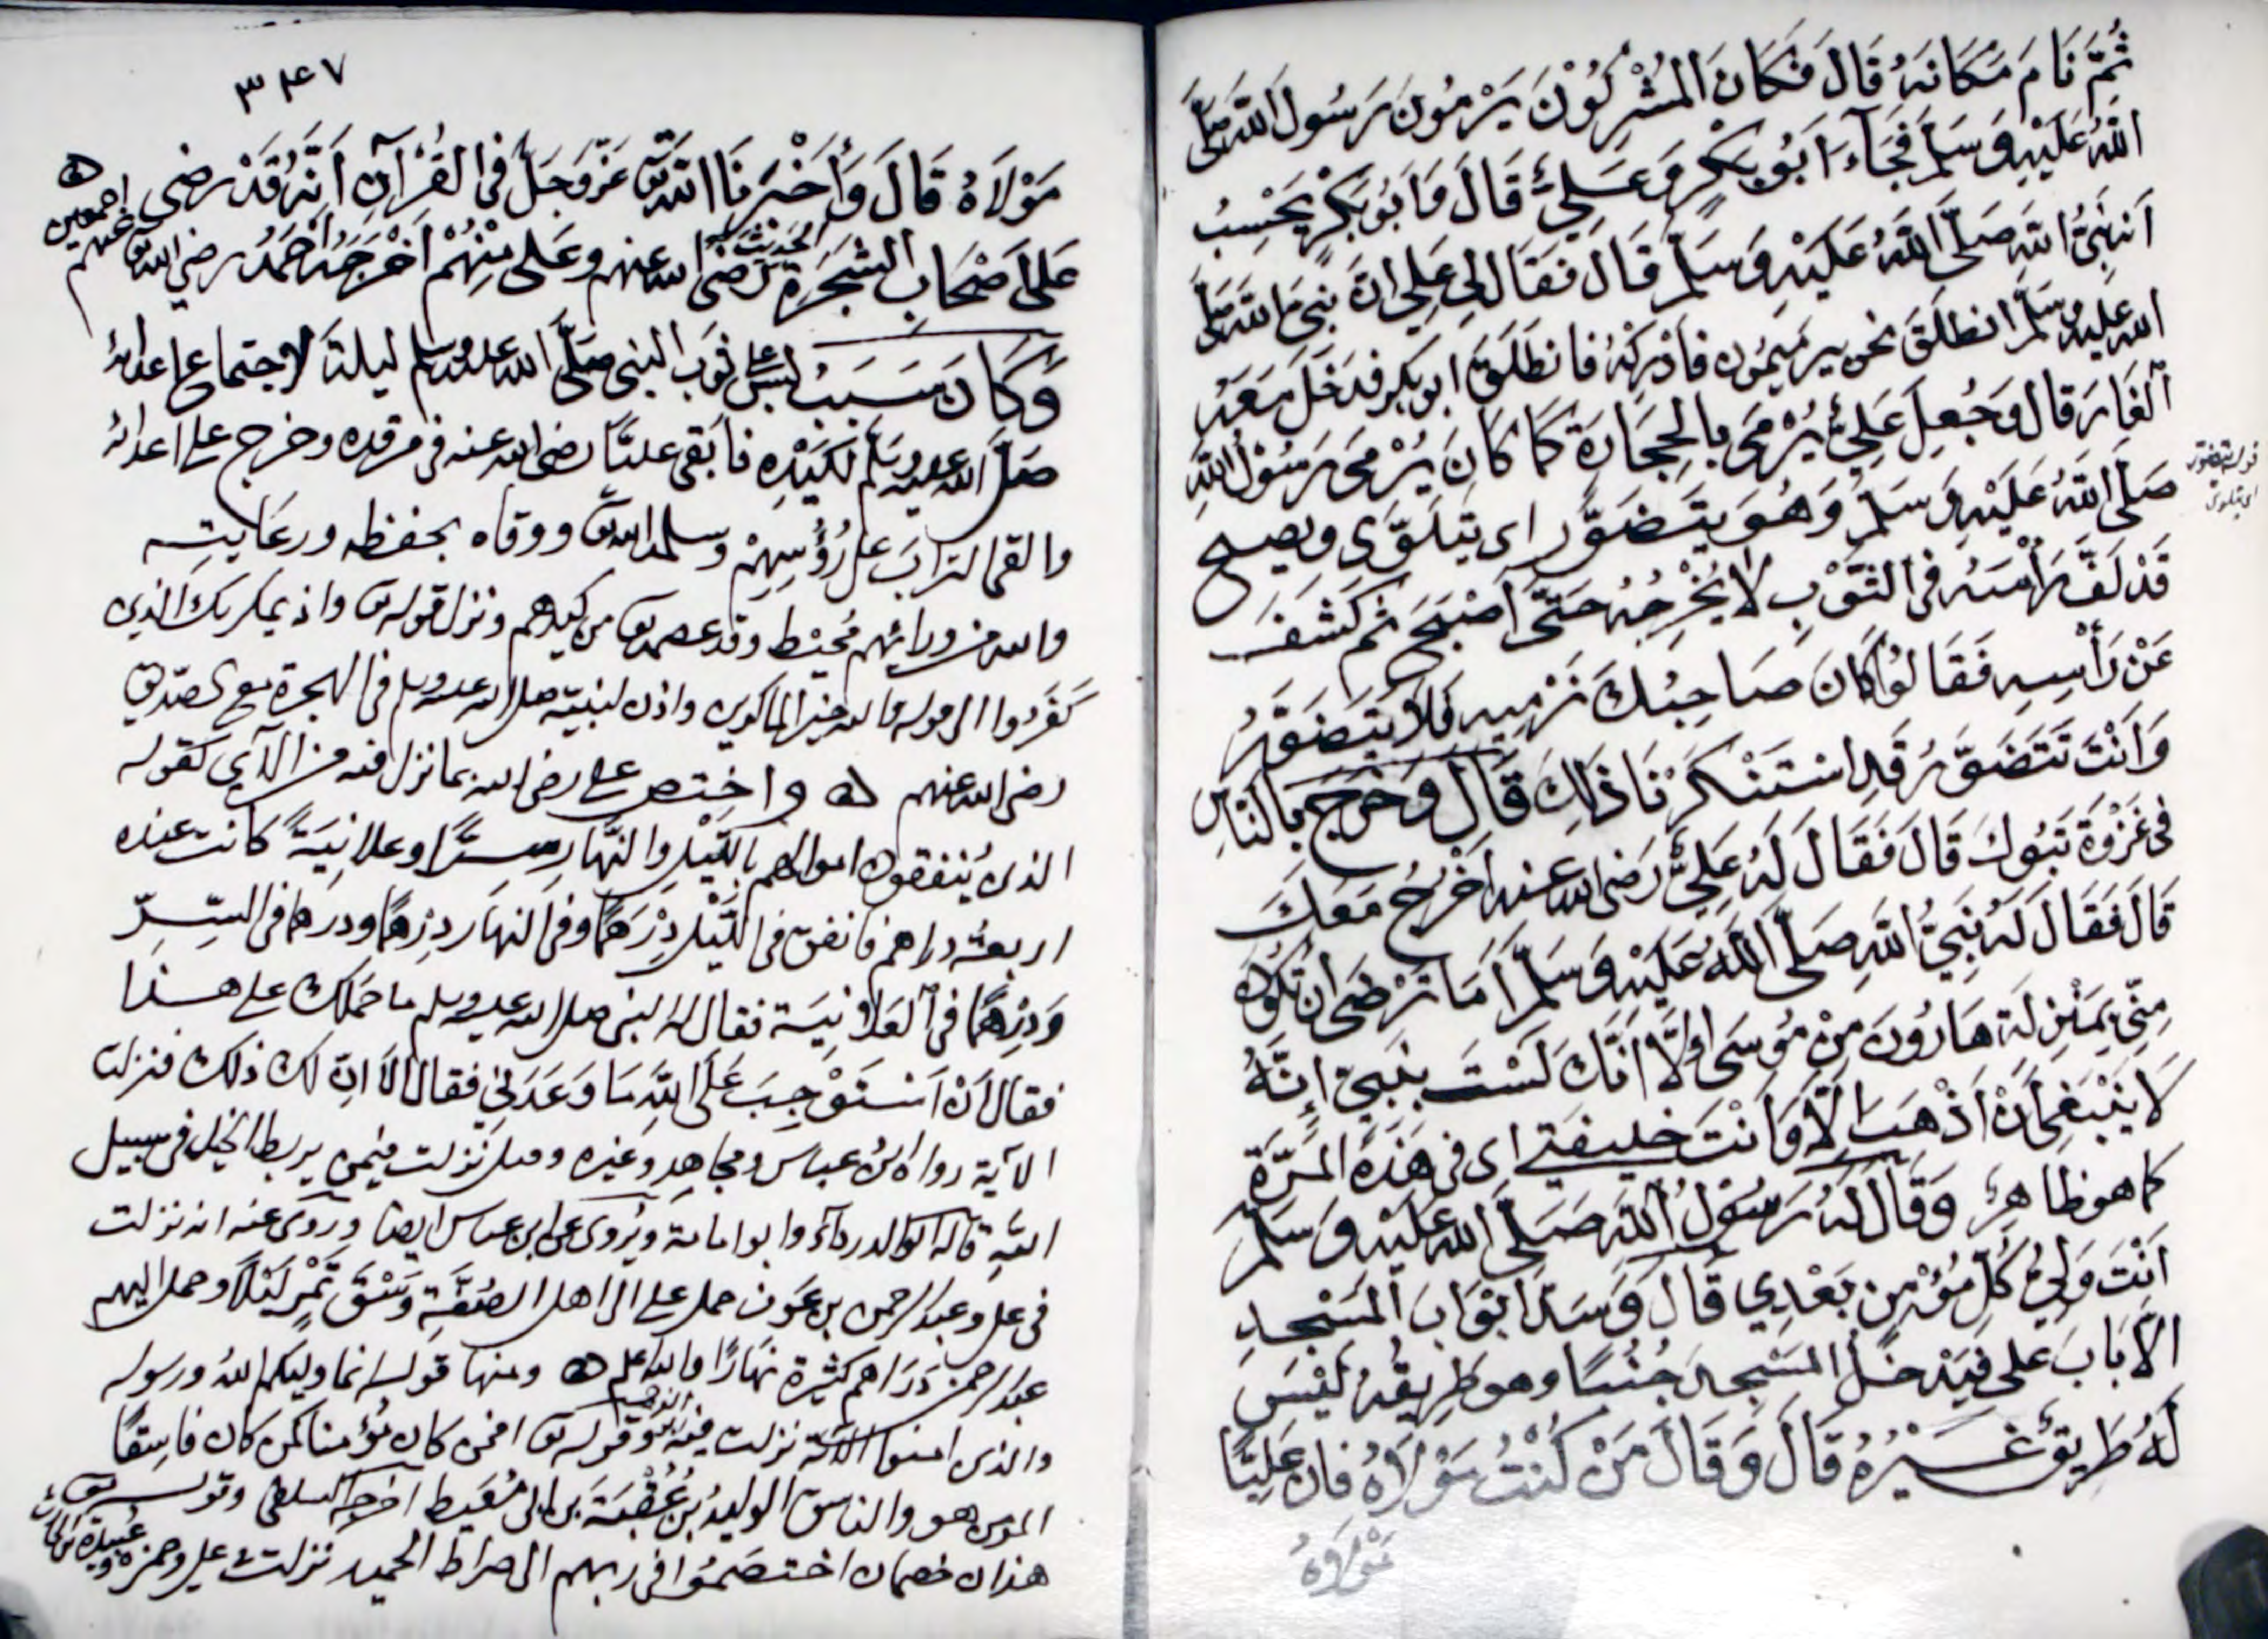 ثُمَّ نَامَ مَكَانَهُ قَالَ فَكَانَ المُشْرِكُوْنَ يَرْمُونَ رَسُولَ اللهِ صَلَّى
اللهُ عَلَيْهِ وَسَلَّمَ فَجَاءَ اَبُو بَكْرٍ وَعَلِيٌّ قَالَ وَاَبُو بَكْرٍ يَحْسِبُ
اَنَّهُ نَبِيُّ اللهِ صَلَّى اللهُ عَلَيْهِ وَسَلَّمَ قَالَ فَقَالَ لِى عَلِى اِنَّ نَبِىَّ اللهِ صَلَّى
الله عليه وسلم انطَلَقَ نحو بير مَيمُون فَادْرِكْهُ فانطَلَقَ ابو بكر فدَخَلَ مَعَهُ
الغَارَ قال وَجُعِلَ عَلِيٌّ يُرْمَى بِالْحِجَارَةِ كَمَا كَانَ يُرْمَى رَسُوْلُ اللهِ
صَلَّى اللهُ عَلَيْهِ وَسَلَّمَ وَهُوَ يَتَضَوَّر اى يتلَوّى ويصيح
قَدْ لَفَّ رَأْسَهُ فى الثَّوْبِ لاَ يُخْرِجُهُ حَتَّى اَصْبَحَ ثم كَشَفَ
عَنْ رَأْسِهِ فَقَالُوا كَانَ صَاحِبُكَ نَرْمِيهِ فَلاَ يَتَضَوَّرُ
وَاَنْتَ تَتَضَوَّرُ قَدِ اسْتَنْكَرْنَا ذَالِكَ قَالَ وَخَرَجَ بِالنَّاسِ
فى غَزْوَةِ تَبُوكَ قَالَ فَقَالَ لَهُ عَلِيٌّ رَضى الله عنه اَخْرُجُ مَعَكَ
قَالَ فَقَالَ لَهُ نَبِيُّ اللهِ صَلَّى اللهُ عَلَيْهِ وَسَلَّمَ اَمَا تَرْضَى اَن تَكُونَ
مِنِّى بِمَنْزِلَةِ هَارُونَ مِنْ مُوسَى اِلاَّ اَنَّكَ لَسْتَ بِنَبِيّ اِنَّهُ
لاَ يَنْبَغِى اَنْ اَذْهَبَ اِلاَّ وَاَنْتَ خليفتى اى فى هَذِهِ المَرَّة
كما هو ظاهِرٌ وَقَالَ لَهُ رَسُوْلُ اللهِ صَلَّى الله عَلَيْهِ وَسَلَّمَ
اَنْتَ وَلِيُّ كُلِّ مُؤْمِنٍ بَعْدِي قَالَ وَسَدَّ اَبْوَابَ المَسْجِدِ
الاَّ بَابَ عَلى فَيَدْخُلُ المَسْجِدَ جُنُبًا وهو طَرِيقُهُ لَيْسَ
لَهُ طَرِيقٌ غَيْرُهُ قَالَ وَقَالَ مَنْ كُنْتُ مَوْلاَهُ فان عَلِيًّا
مَوْلاَهُ
قوله يتضور
اى يتلوى
٣٤٧
مَوْلاَهُ قَالَ وَأَخْبَرَنَا اللهُ تعَ عَزَّ وَجَلَّ فى القُرْآنِ اَنَّهُ قَدْ رضى
عَلى اَصْحَابِ الشَّجَرَةِ الحديث رضى الله عنهم وعَلى مِنْهُمْ اَخْرَجَهُ اَحْمَدُ رضى الله عنهم اجمعين ه
وَكَانَ سَبَبُ لبس على ثوب النبى صَلَّى الله عليه وسلم ليلة لاجتماع اعدائه
صَلَّى الله عليه وسلم لكَيْدِه فابقى عليًّا رضى الله عنه فى مرقده وخرج على اعدائه
والقى التراب على رُؤُسِهِمْ وسلمه الله تعَ ووقاه بحفظه ورِعَايتِه
والله من ورائهم مُحيْط وقد عصمه تع من كيدهم ونزل قوله تع واذ يمكر بك الذين
كَفَرُوا الى قوله والله خير الماكرين واذن لنبيّه صلى الله عليه وسلم فى الهجرة مع الصدّيق
رضى الله عنهم ه واختص على رضى الله بما نزل فيه من الآى كقوله
الذين يُنفقون اموالهم بِالَّيْلِ والنَّهَارِ سِرًّا وعلانِيَةً كَانت عنده
اربعة دراهم فانفق فى اللَّيْلِ دِرْهَمًا وفى النهَار دِرْهمًا ودرهما فى السِّرّ
وَدِرْهَمًا فى العَلاَنيَة فقال له النبى صلى الله عليه وسلم ما حَمَلَك على هذا
فقال اَنْ اَسْتَوْجِبَ عَلَى اللهِ مَا وَعَدَنِى فقال اَلاَ اِنَّ لك ذلك فنزلت
الآية رواه ابن عباس ومجاهد وغيره وقيل نَزلت فيمن يربط الخيل فى سبيل
اللهِ قاله ابو الدرداء وابو امامة ويُروى عن ابن عباس ايضًا وروى عنه انه نزلت
فى على وعبد الرحمن بن عَوْف حمل على الى اهل الصُّفَّةِ وَسْقَ تَمْرٍ لَيْلاً وحمل اليهم
عبد الرحمن دَرَاهم كَثِيْرة نَهَارًا والله اعلم ه ومنها قوله انما وليكم اللهُ ورسوله
والذين امنوا الآية نزلت فيه وقوله تع افمن كان مُؤمنا كمن كان فاسِقًا
المؤمن هو والفاسق الوليدُ بن عُقْبَةَ بن ابى مُعَيط اخرجه السلفى وقوله تع
هذان خصمان اختصَمُوا فى ربهم الى صراط الحميد نزلت فى على وحمزة وعُبيدة بن الحارث